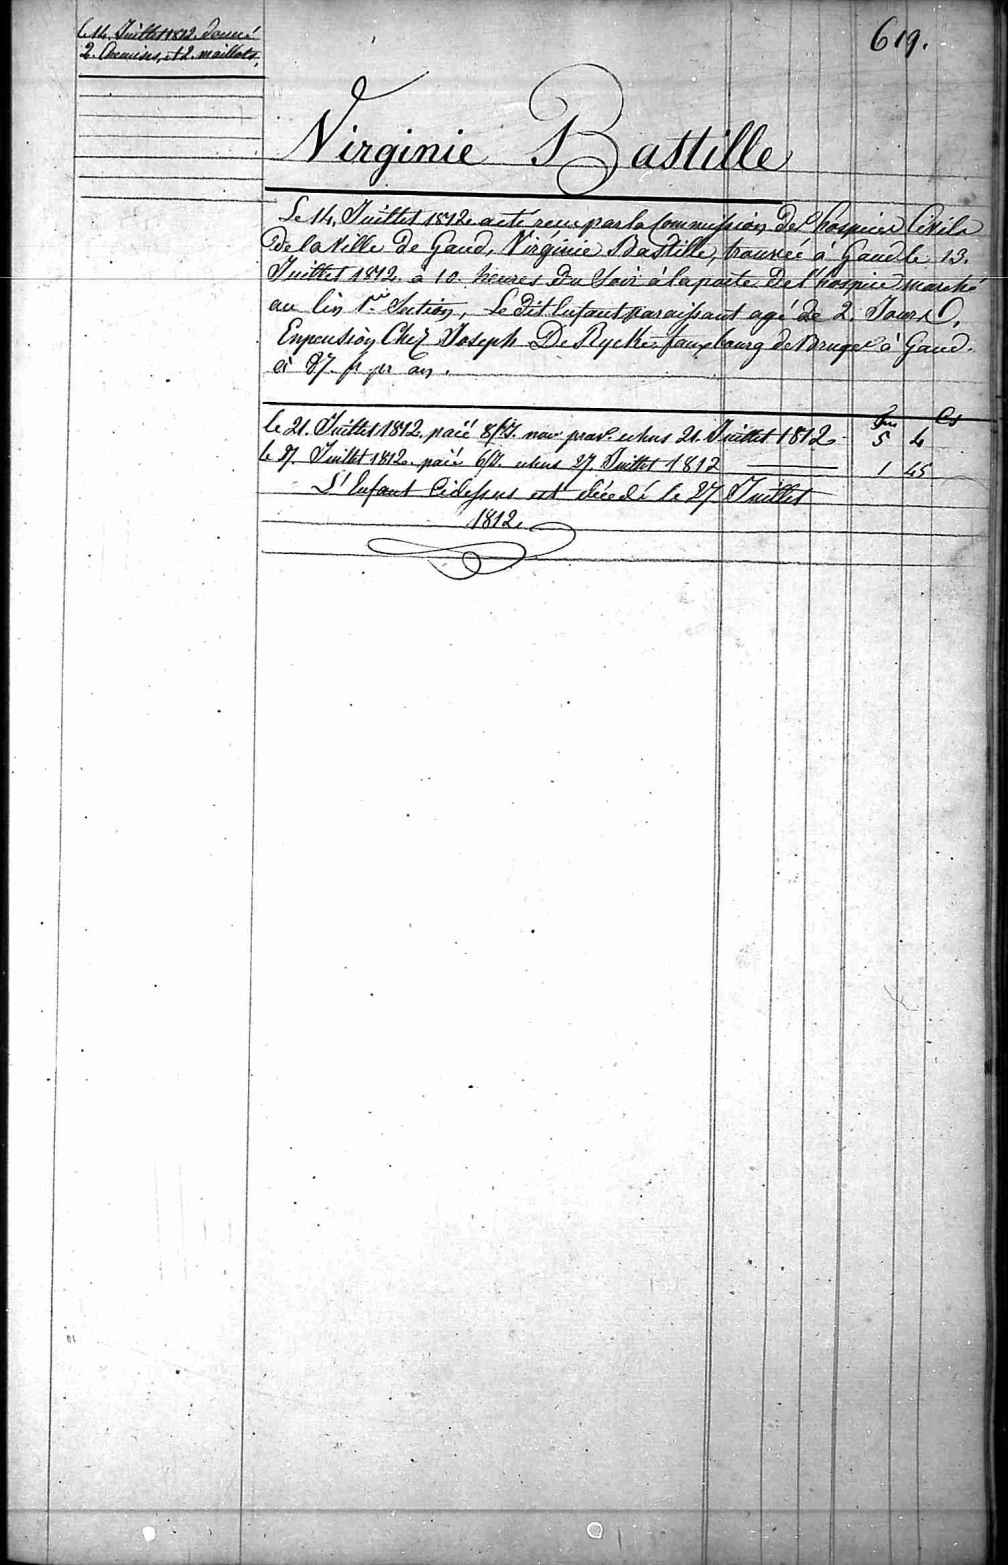 le 14. Juillet 1812. donné
2. Chemises, et 2. maillots.
619.
Virginie Bastille
Le 14. Juillet 1812 a été recu par la Commission des hospices Civils
de la Ville de Gand, Virginie Bastille, trouvée à Gand le 13.
Juillet 1812. à 10. heures du Soir à la porte de l'hospice marché
au lin 1re Section, Le dit Enfant paraissant agé de 2. Jours.
En pension Chez Joseph De Rycke fauxbourg de Bruges à Gand.
à 87 fr par an.
frs Cs
le 21. Juillet 1812. paié echus 21. Juillet 1812 5 4
le 27. Juillet 1812 paié echus 27. Juillet 1812 1 45
L'Enfant Cidessus est décedé le 27 Juillet
1812.